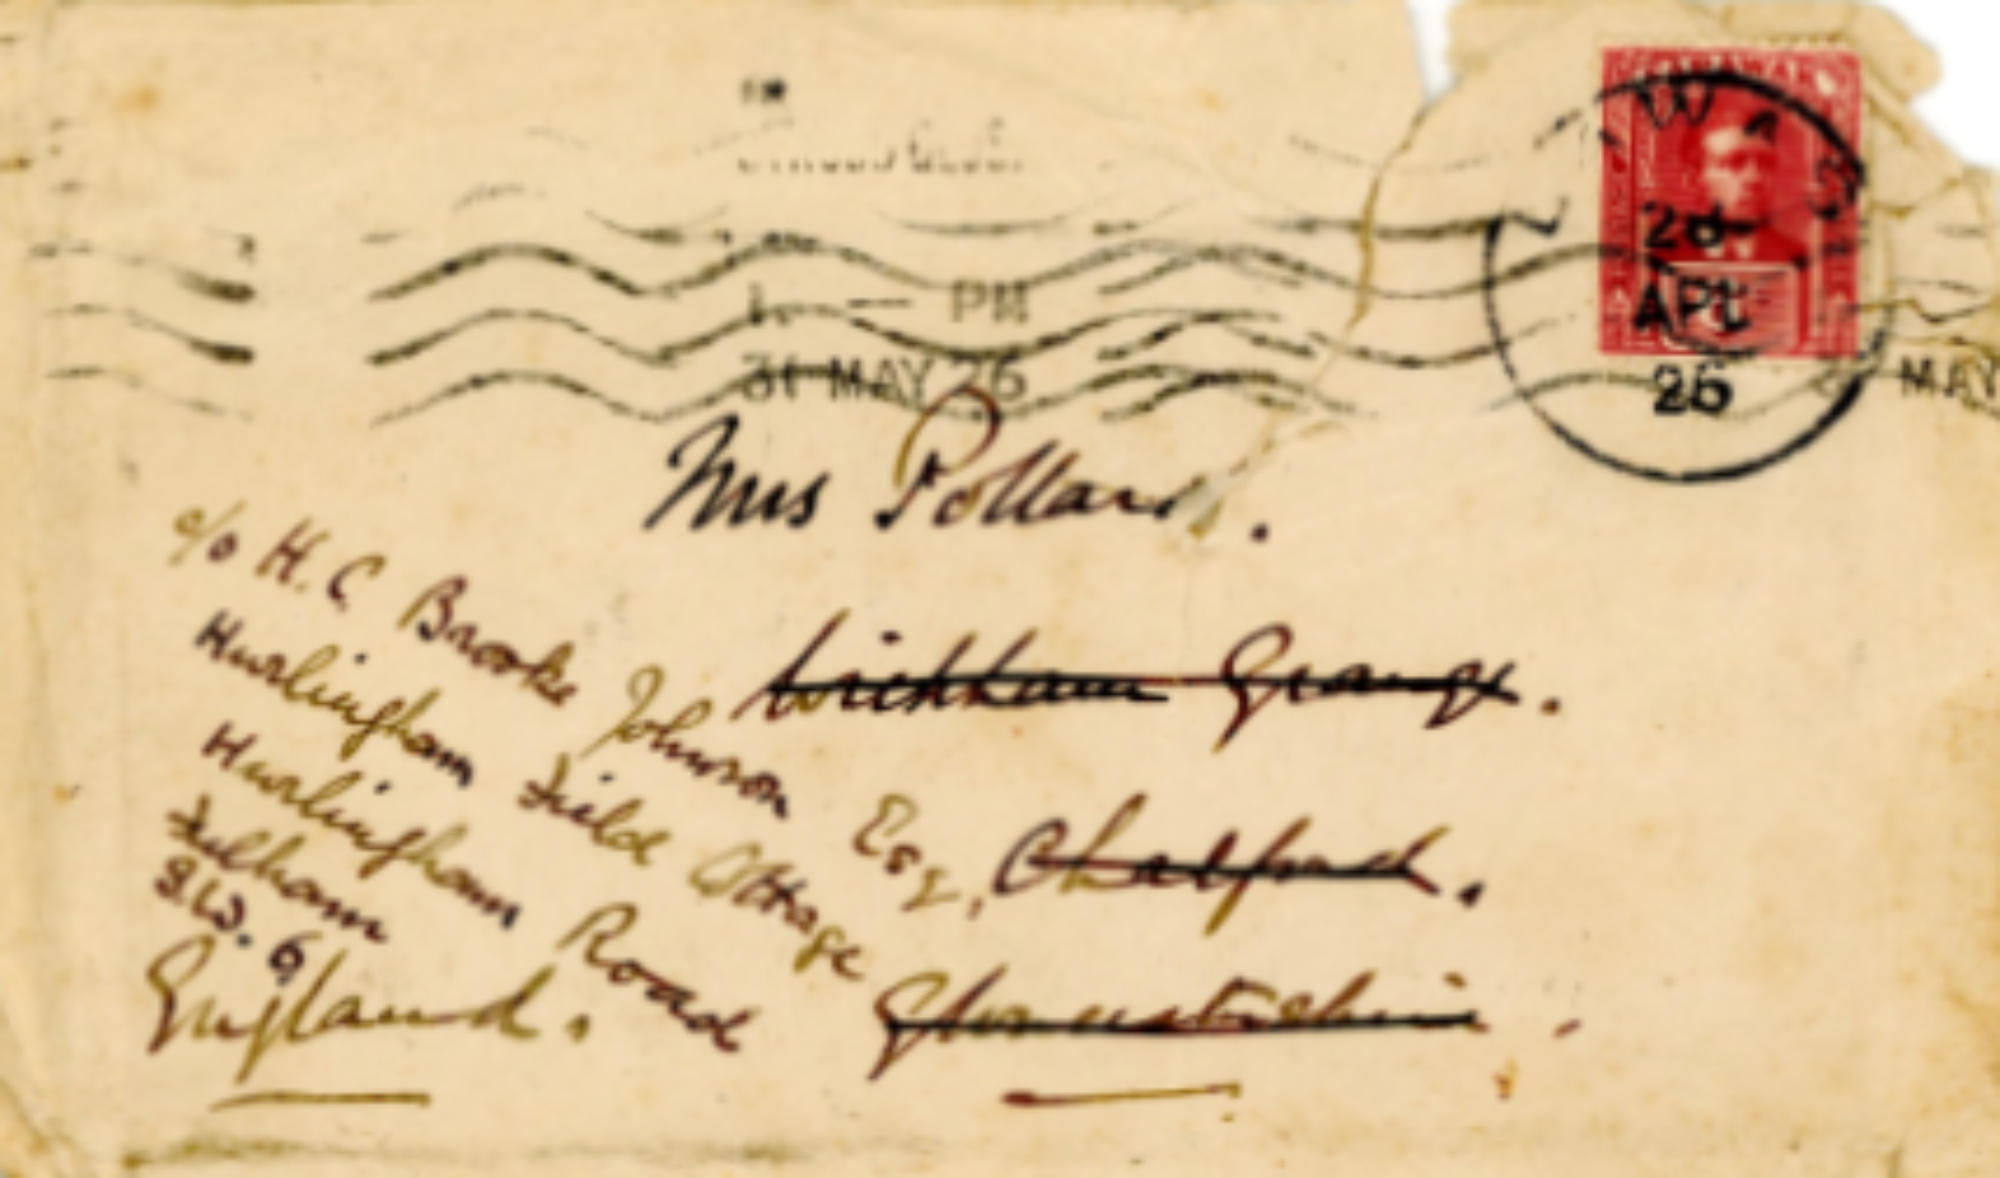 SARAWAK
26
APL
26
1. — PM
31 MAY 26
MAY
Mrs Pollard.
Grange.
Chalford.
Gloucestershire.
c/o H. C. Brooke Johnson Esq,
Hurlingham Field Cottage
Hurlingham Road
Fulham
S.W. 6
England.